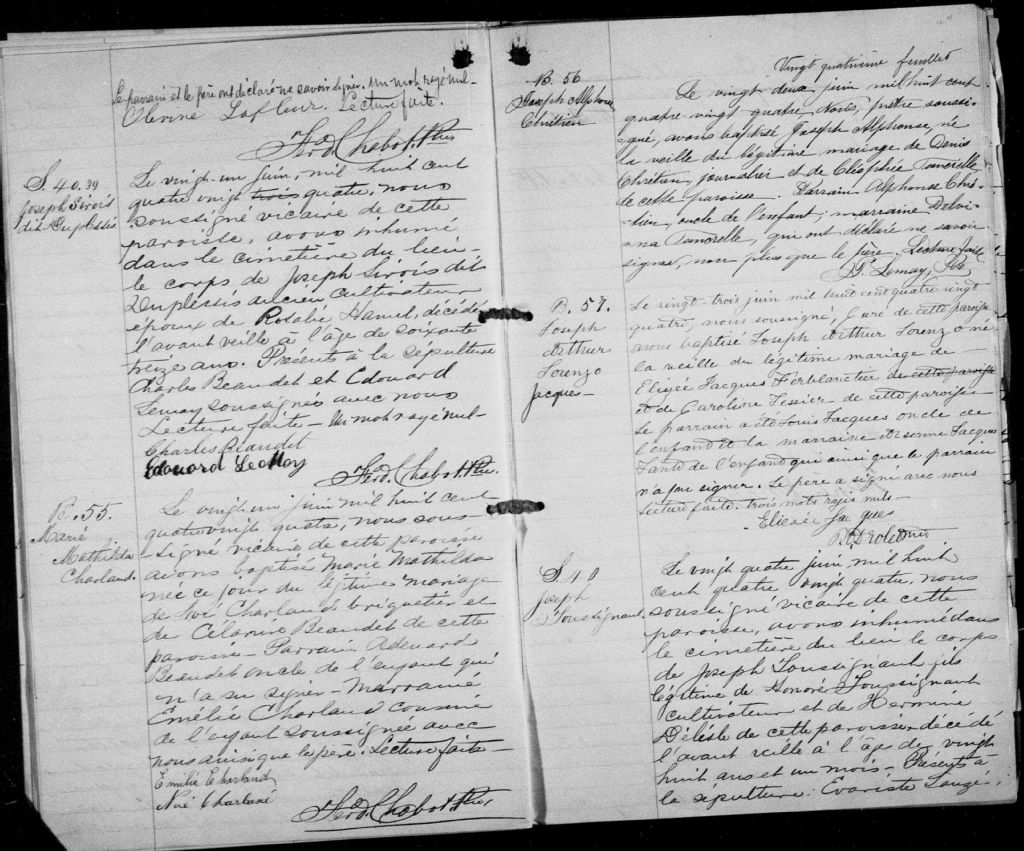 Le parrain et le père ont déclaré ne savoir signer. Un mot rayé nul-
Olevine Lafleur. Lecture faite.
Ferd. Chabot. Ptre
S. 40. 39
Joseph Sirois
dit Duplessis
Le vingt-un juin, mil huit cent
quatre vingt trois quatre, nous
soussigné vicaire de cette
paroisse, avons inhumé
dans le cimetière du lieu-
le corps de Joseph Sirois dit
Duplessis ancien cultivateur,
époux de Rosalie Hamel, décédé
l'avant veille à l'âge de soixante
treize ans. Présents à la sépulture
Charles Beaudet et Edouard
Lemay soussignés avec nous
Lecture faite - Un mot rayé nul-
Charles Beaudet
Edouard LeMay
Ferd. Chabot. Ptre.
B. 55.
Marie
Mathilda
Charland.
Le vingt-un juin mil huit cent
quatre vingt quatre, nous sous-
-signé vicaire de cette paroisse
avons baptisé Marie Mathilda
née ce jour du légitime mariage
de Noé Charland briquetier et
de Célanire Beaudet de cette
paroisse - Parrain Adouard
Beaudet oncle de l'enfant qui
n'a su signer - Marraine
Emélie Charland cousine
de l'enfant soussignée avec
nous ainsi que le père. Lecture faite -
Emilie Charland
Noé Charland
Ferd. Chabot Ptre
Vingt quatrième feuillet
B. 56
Joseph Alphonse
Chrétien
Le vingt deux juin mil huit cent
quatre-vingt quatre, Nous, prêtre soussi-
gné, avons baptisé Joseph Alphonse, né
la veille du légitime mariage de Denis
Chrétien, journalier et de Cléophée Tancrelle
de cette paroisse. Parrain Alphonse Chré-
-tien, oncle de l'enfant; marraine Delvi-
na Tancrelle, qui ont déclaré ne savoir
signer, non plus que le père. Lecture faite
Lemay, Ptre
B. 57.
Joseph
Arthur
Lorenzo
Jacques-
Le vingt-trois juin mil huit cent quatre vingt
quatre, nous soussigné, Curé de cette paroisse
avons baptisé Joseph Arthur Lorenzo né
la veille du légitime mariage de
Elizée Jacques Ferblantier de cette paroisse
et de Caroline Tessier de cette paroisse-
Le parrain a été Louis Jacques oncle de
l'enfant et la marraine Jacques
tante de l'enfant qui ainsi que le parrain
n'a pu signer. Le père a signé avec nous
Lecture faite. trois mots rayés nuls-
Elizée Jacques
S. 40
Joseph
Toussignant.
Le vingt quatre juin, mil huit
cent quatre vingt quatre, nous
soussigné vicaire de cette
paroisse, avons inhumé dans
le cimetière du lieu le corps
de Joseph Toussignant fils
légitime de Honoré Toussignant
cultivateur et de Hermine
Délisle de cette paroisse, décédé
l'avant veille à l'âge de vingt
huit ans et un mois - Présents à
la sépulture: Evariste Laugé,